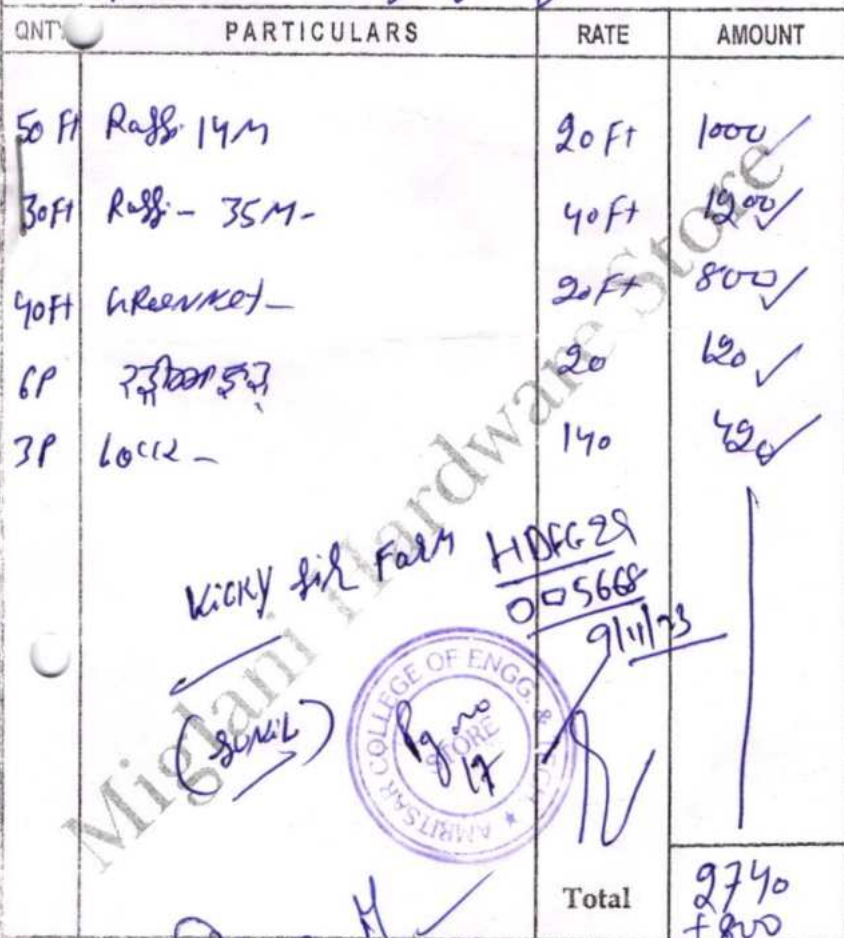 QNTY PARTICULARS RATE AMOUNT
50 Ft Raffi 14M 20 Ft 1000
30Ft Raffi - 35M - 40 Ft 1200
40Ft GREENNet - 20 Ft 800
6P 20 120
3P Lock - 140 420
Vicky Sir Farm
005668
9/11/23
(SUNIL)
AMRITSAR COLLEGE OF ENGG. &
STORE
Pg no
17
Miglani Hardware Store
Total 2740
+800